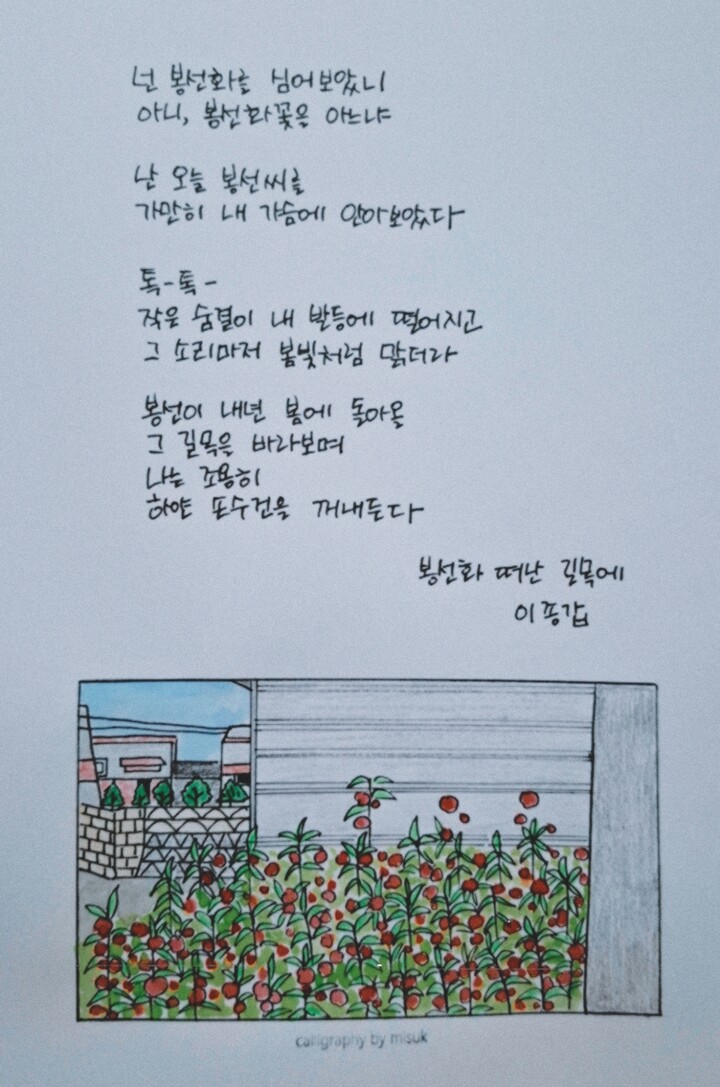 넌 봉선화를 심어보았니
아니, 봉선화꽃은 아느냐
난 오늘 봉선씨를
가만히 내 가슴에 안아보았다
톡-톡-
작은 숨결이 내 발등에 떨어지고
그 소리마저 봄빛처럼 맑더라
봉선이 내년 봄에 돌아올
그 길목을 바라보며
나는 조용히
하얀 포수건을 꺼내든다
봉선화 떠난 길목에
이종갑
calligraphy by misuk